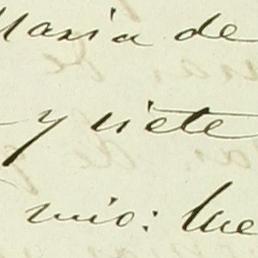 Maria de
y siete
mio: Que